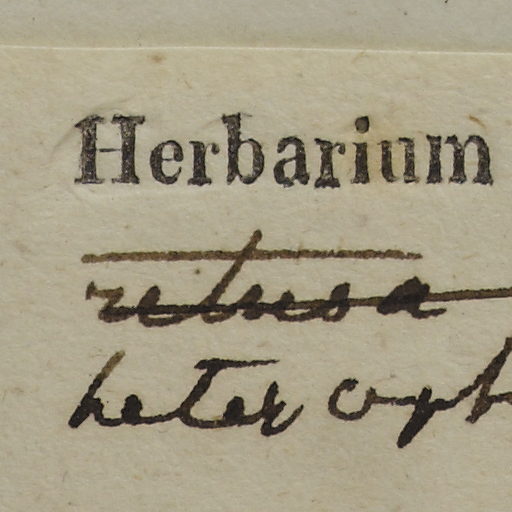 Herbarium
retusa
heteroph